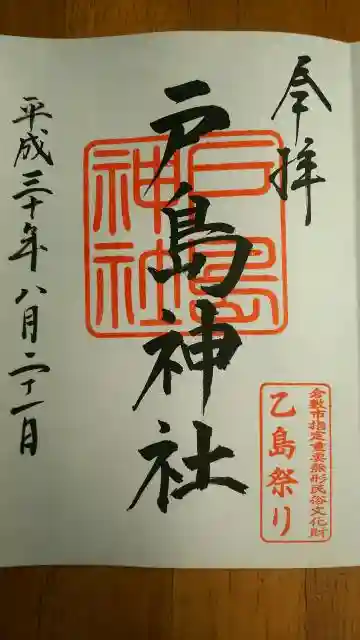 奉拝
戸島神社
戸島
神社
倉敷市指定重要無形民俗文化財
乙島祭り
平成三十年八月二十一日